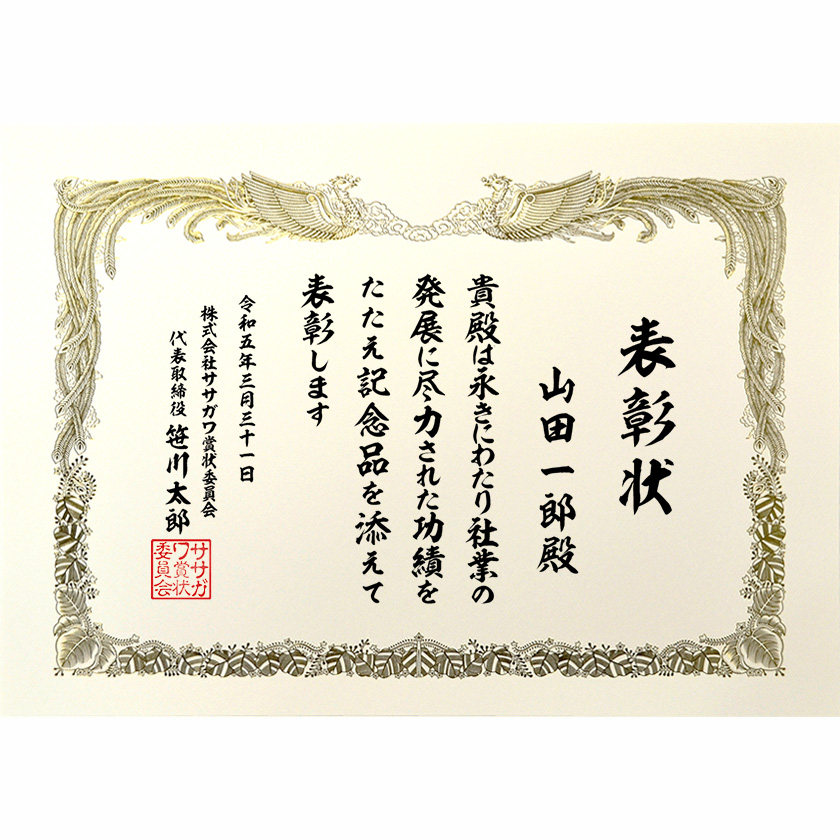 表彰状
山田一郎殿
貴殿は永きにわたり社業の
発展に尽力された功績を
たたえ記念品を添えて
表彰します
令和五年三月三十一日
株式会社ササガワ賞状委員会
代表取締役 笹川太郎
ササガ
ワ賞状
委員会